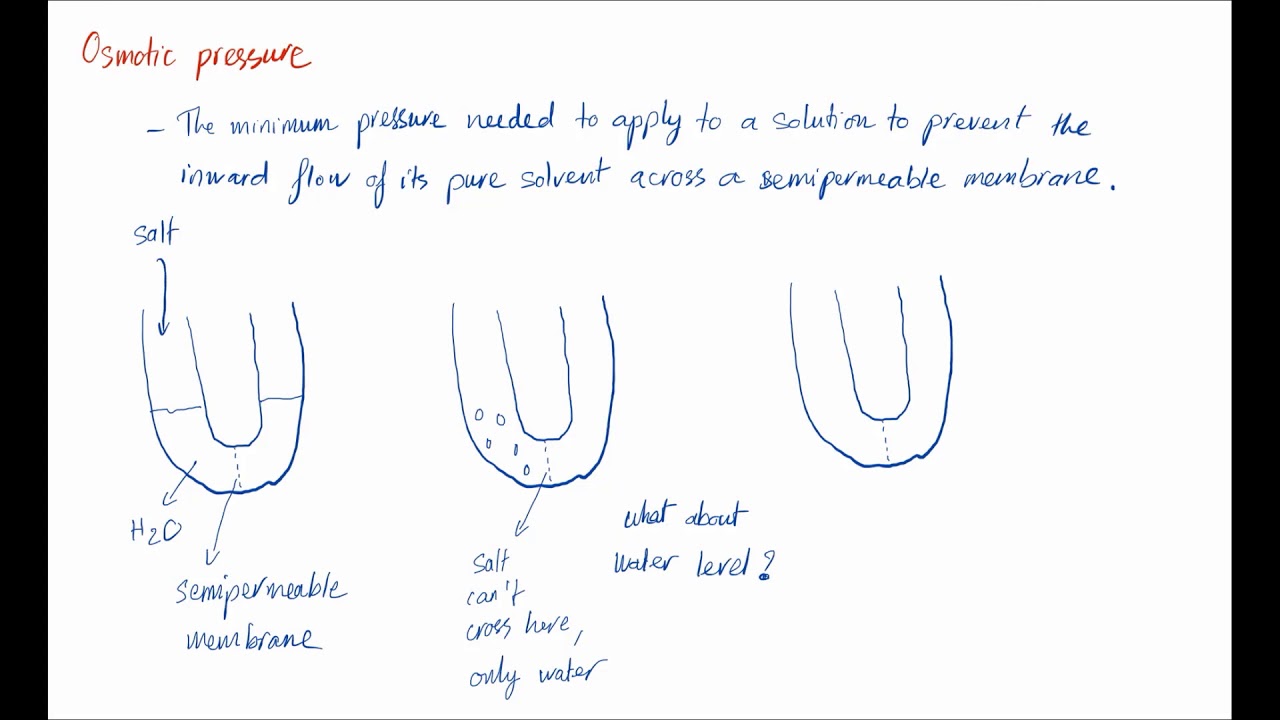 Osmotic pressure
- The minimum pressure needed to apply to a solution to prevent the
inward flow of its pure solvent across a semipermeable membrane.
salt
H2O
semipermeable
membrane
salt
can't
cross here,
only water
what about
water level?